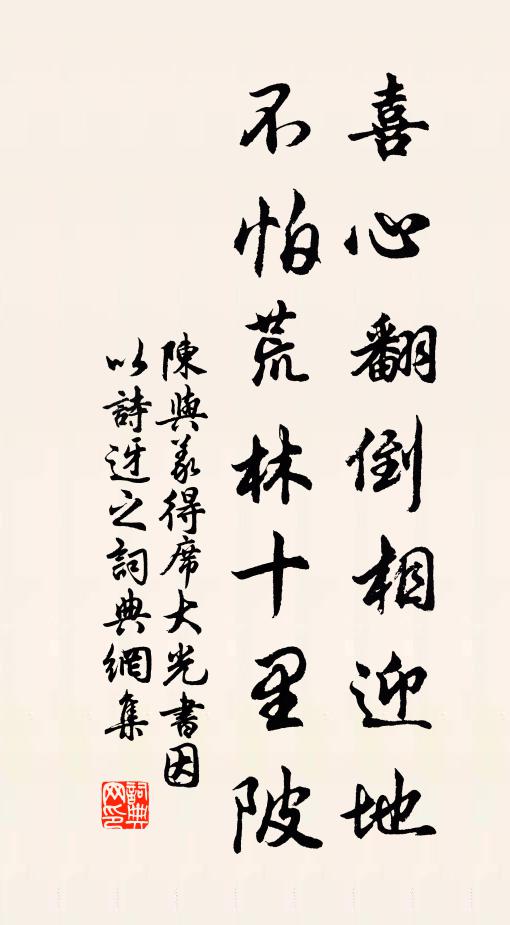 喜心翻倒相迎地
不怕荒林十里陂
陳與義得席大光書因
以詩迓之詞典網集
詞典
网印